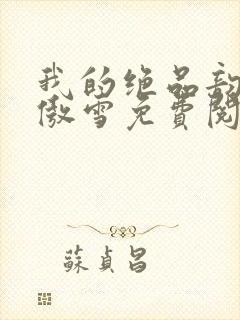 我的绝品
傲雪免費閱
蘇貞昌